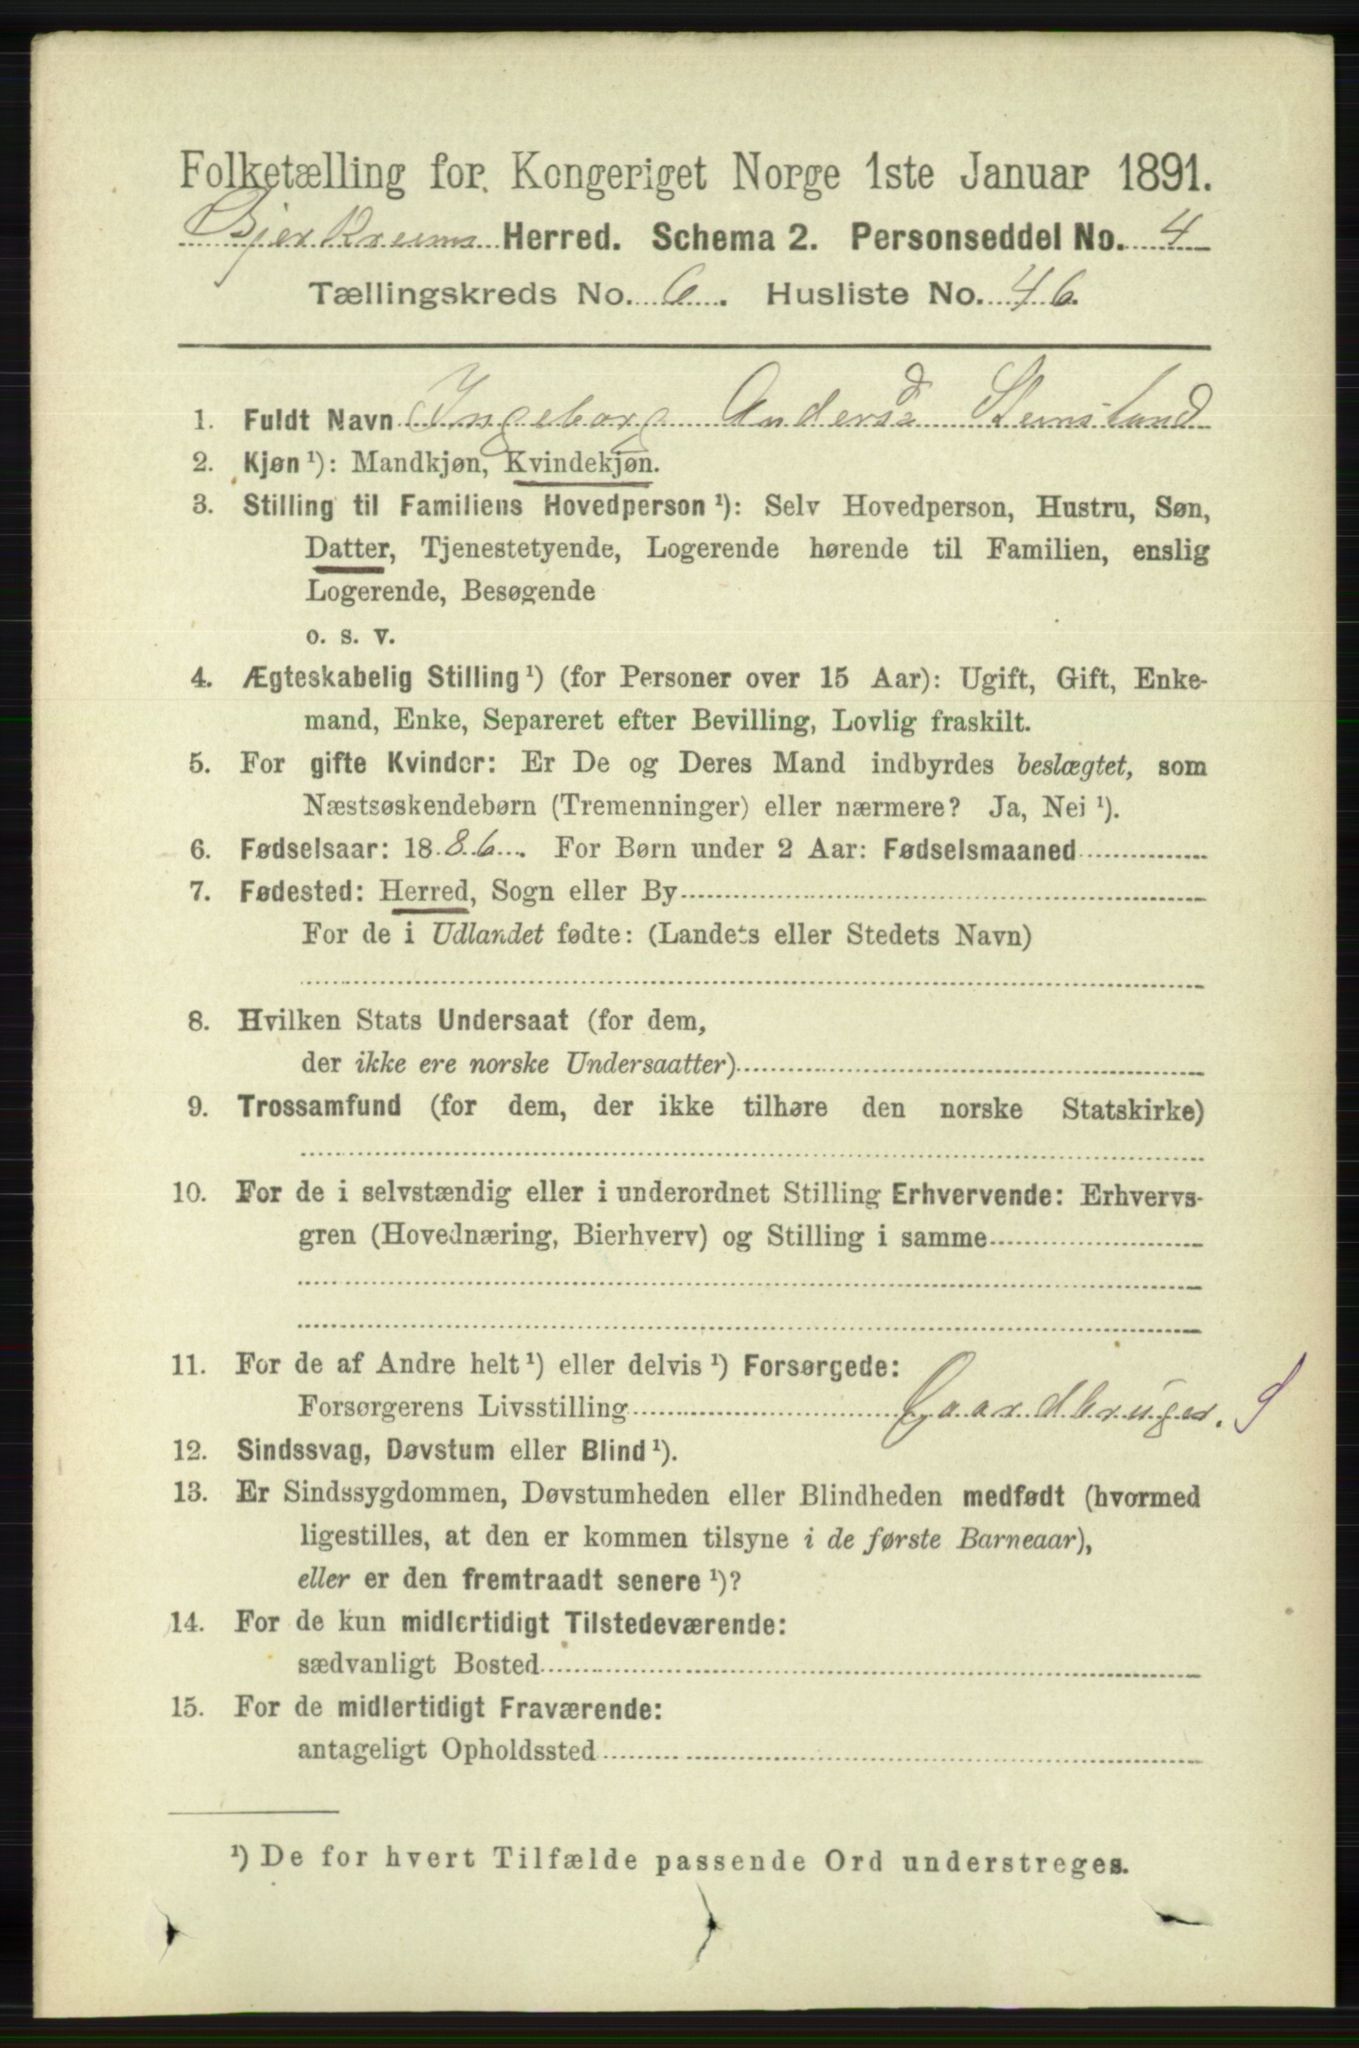 Folketælling for Kongeriget Norge 1ste Januar 1891.
Bjerkreims Herred. Schema 2. Personseddel No. 4
Tællingskreds No. 6. Husliste No. 46.
1. Fuldt Navn Ingeborg Andersd Stensland
2. Kjøn ¹): Mandkjøn, Kvindekjøn.
3. Stilling til Familiens Hovedperson ¹): Selv Hovedperson, Hustru, Søn,
Datter, Tjenestetyende, Logerende hørende til Familien, enslig
Logerende, Besøgende
o. s. v.
4. Ægteskabelig Stilling ¹) (for Personer over 15 Aar): Ugift, Gift, Enke-
mand, Enke, Separeret efter Bevilling, Lovlig fraskilt.
5. For gifte Kvinder: Er De og Deres Mand indbyrdes beslægtet, som
Næstsøskendebørn (Tremenninger) eller nærmere? Ja, Nei ¹).
6. Fødselsaar: 1886. For Børn under 2 Aar: Fødselsmaaned
7. Fødested: Herred, Sogn eller By
For de i Udlandet fødte: (Landets eller Stedets Navn)
8. Hvilken Stats Undersaat (for dem,
der ikke ere norske Undersaatter)
9. Trossamfund (for dem, der ikke tilhøre den norske Statskirke)
10. For de i selvstændig eller i underordnet Stilling Erhvervende: Erhvervs-
gren (Hovednæring, Bierhverv) og Stilling i samme
11. For de af Andre helt ¹) eller delvis ¹) Forsørgede:
Forsørgerens Livsstilling Gaardbruger. S
12. Sindssvag, Døvstum eller Blind ¹).
13. Er Sindssygdommen, Døvstumheden eller Blindheden medfødt (hvormed
ligestilles, at den er kommen tilsyne i de første Barneaar),
eller er den fremtraadt senere ¹)?
14. For de kun midlertidigt Tilstedeværende:
sædvanligt Bosted
15. For de midlertidigt Fraværende:
antageligt Opholdssted
¹) De for hvert Tilfælde passende Ord understreges.